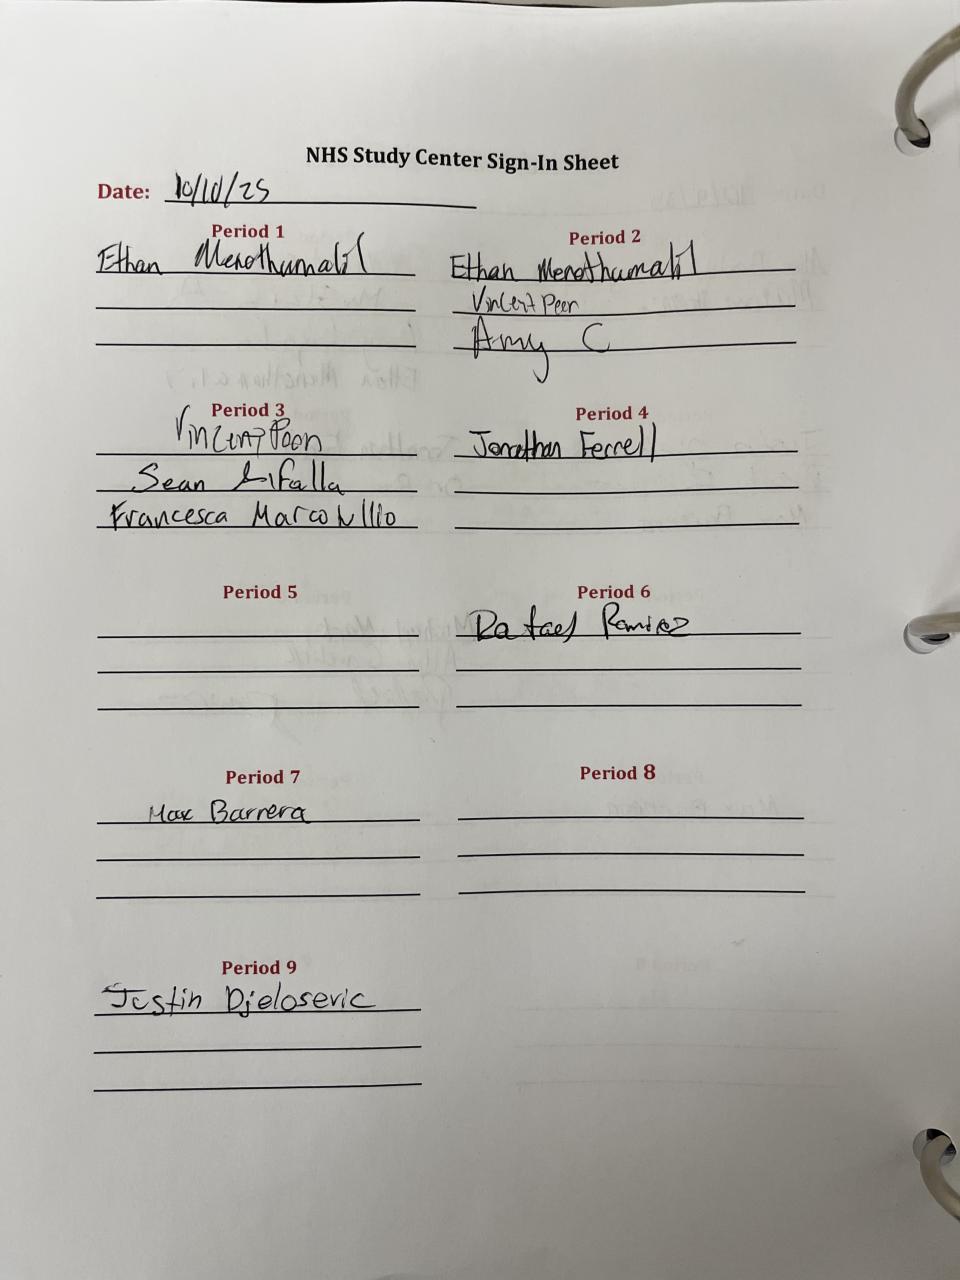 NHS Study Center Sign-In Sheet
Date: 10/10/25
Period 1
Ethan Menothumalil
Period 2
Ethan Menothumalil
Vincent Poon
Amy C
Period 3
Vincent Poon
Sean Lifalla
Francesca Marcovillio
Period 4
Jonathan Ferrell
Period 5
Period 6
Rafael Ramirez
Period 7
Max Barrera
Period 8
Period 9
Justin Djelosevic